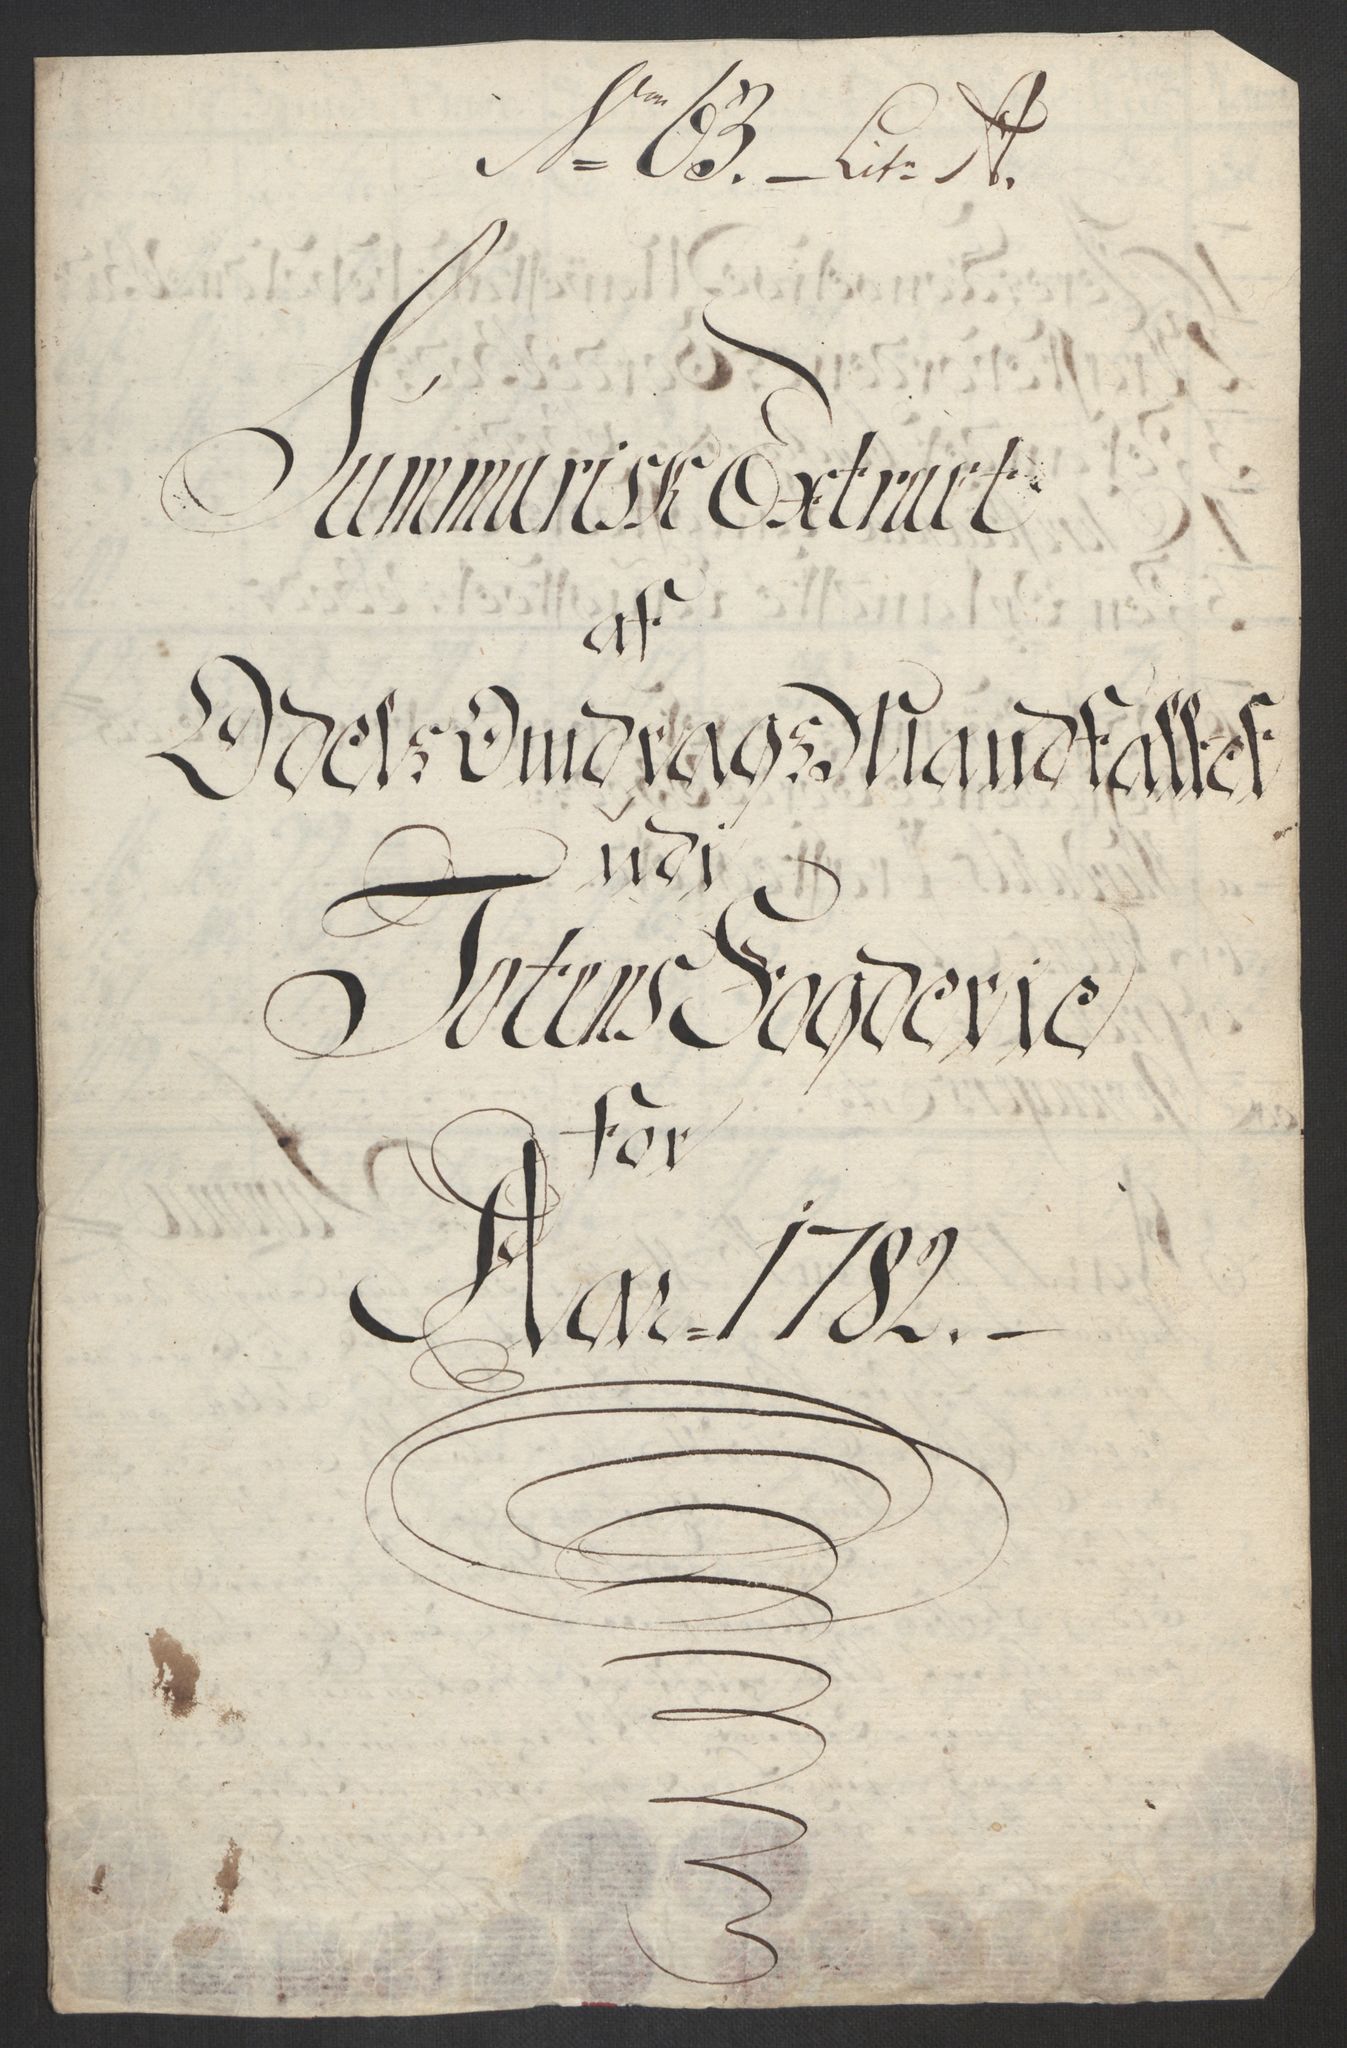 Nrm 63. – Lit: A.
Summarisk Extract
af
Odels Omdrags Mandtallet
udi
Totens Fogderie
for
Aar 1782. –